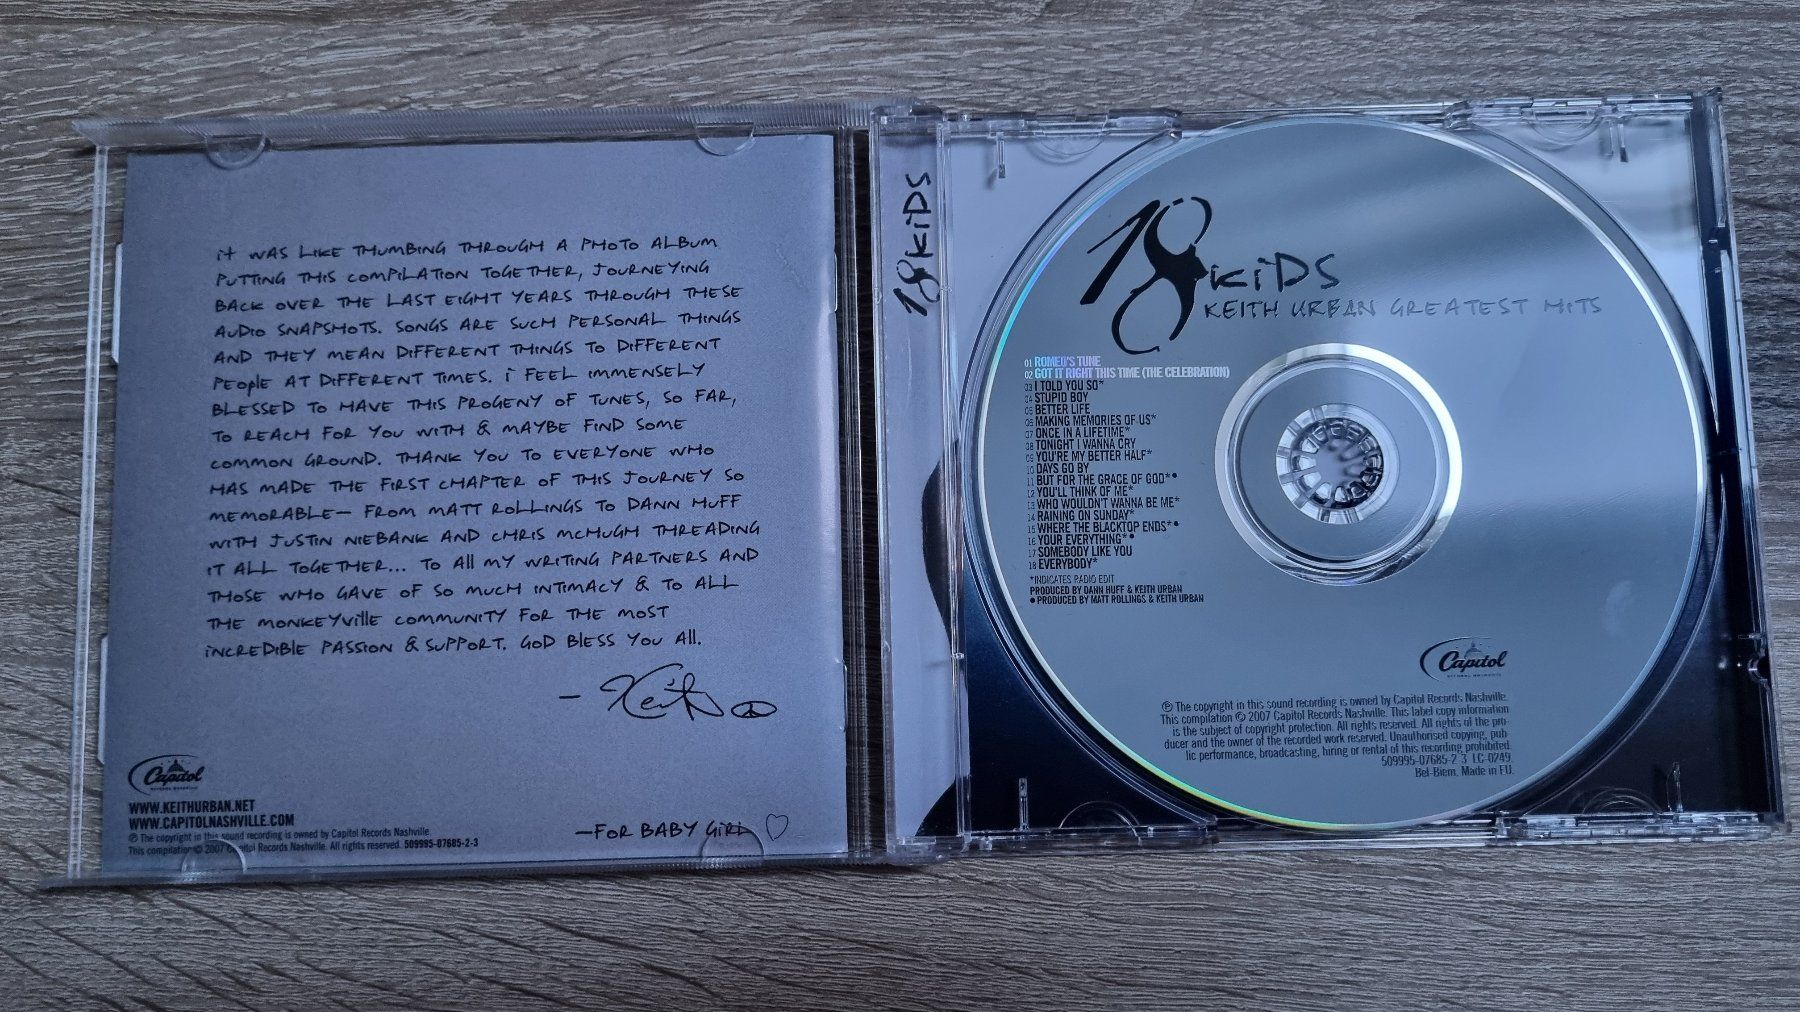 it was like thumbing through a photo album
putting this compilation together, journeying
back over the last eight years through these
audio snapshots. Songs are such personal things
and they mean different things to different
people at different times. i feel immensely
blessed to have this progeny of tunes, so far,
to reach for you with & maybe find some
common ground. Thank you to everyone who
has made the first chapter of this journey so
memorable— from Matt Rollings to Dann Huff
with Justin Niebank and Chris McHugh threading
it all together... to all my writing partners and
those who gave of so much intimacy & to all
the Monkeyville community for the most
incredible passion & support. God bless you all.
– Keith
Capitol
WWW.KEITHURBAN.NET
WWW.CAPITOLNASHVILLE.COM
℗ The copyright in this sound recording is owned by Capitol Records Nashville.
This compilation © 2007 Capitol Records Nashville. All rights reserved. 509995-07685-2-3
—FOR BABY GIRL ♡
18KiDS
18KiDS
KEITH URBAN GREATEST HITS
01 ROMEO'S TUNE
02 GOT IT RIGHT THIS TIME (THE CELEBRATION)
03 I TOLD YOU SO*
04 STUPID BOY
05 BETTER LIFE
06 MAKING MEMORIES OF US*
07 ONCE IN A LIFETIME*
08 TONIGHT I WANNA CRY
09 YOU'RE MY BETTER HALF*
10 DAYS GO BY
11 BUT FOR THE GRACE OF GOD*•
12 YOU'LL THINK OF ME*
13 WHO WOULDN'T WANNA BE ME*
14 RAINING ON SUNDAY*
15 WHERE THE BLACKTOP ENDS*•
16 YOUR EVERYTHING*•
17 SOMEBODY LIKE YOU
18 EVERYBODY*
*INDICATES RADIO EDIT
PRODUCED BY DANN HUFF & KEITH URBAN
• PRODUCED BY MATT ROLLINGS & KEITH URBAN
Capitol
℗ The copyright in this sound recording is owned by Capitol Records Nashville.
This compilation © 2007 Capitol Records Nashville. This label copy information
is the subject of copyright protection. All rights reserved. All rights of the pro-
ducer and the owner of the recorded work reserved. Unauthorised copying, pub-
lic performance, broadcasting, hiring or rental of this recording prohibited.
509995-07685-2 3 LC-0249.
Bel-Biem. Made in EU.